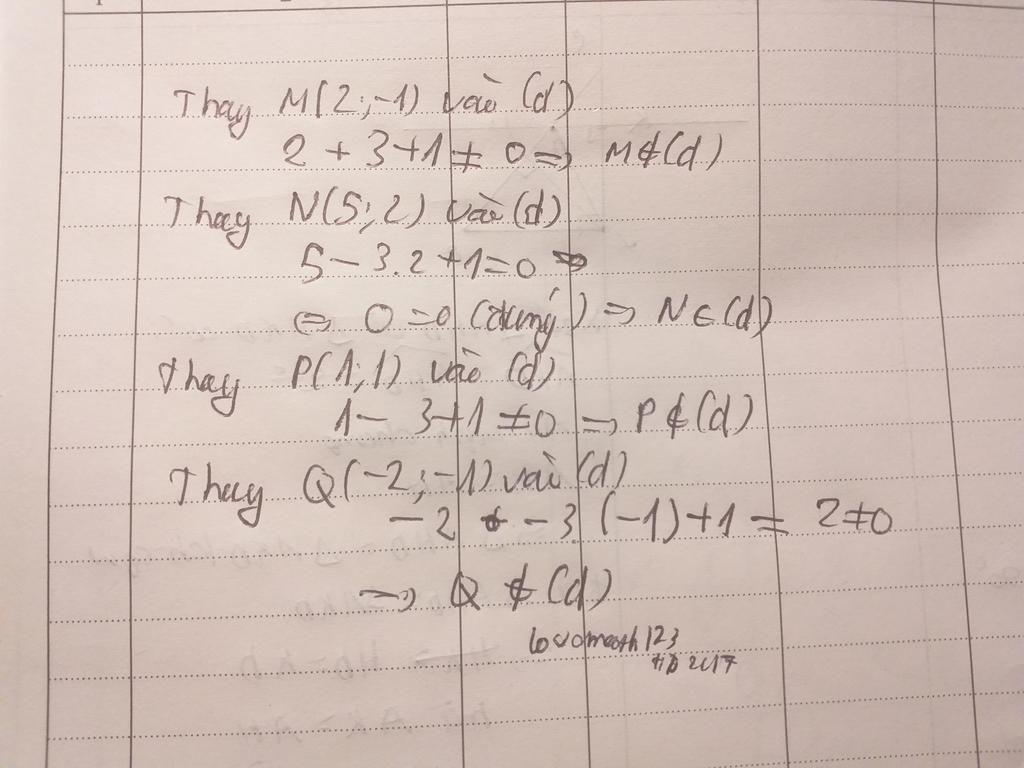 Thay M(2;-1) vào (d)
2 + 3 + 1 ≠ 0 => M ∉ (d)
Thay N(5;2) vào (d)
5 - 3.2 + 1 = 0
<=> 0 = 0 (đúng) => N ∈ (d)
Thay P(1;1) vào (d)
1 - 3 + 1 ≠ 0 => P ∉ (d)
Thay Q(-2;-1) vào (d)
-2 - 3(-1) + 1 = 2 ≠ 0
=> Q ∉ (d)